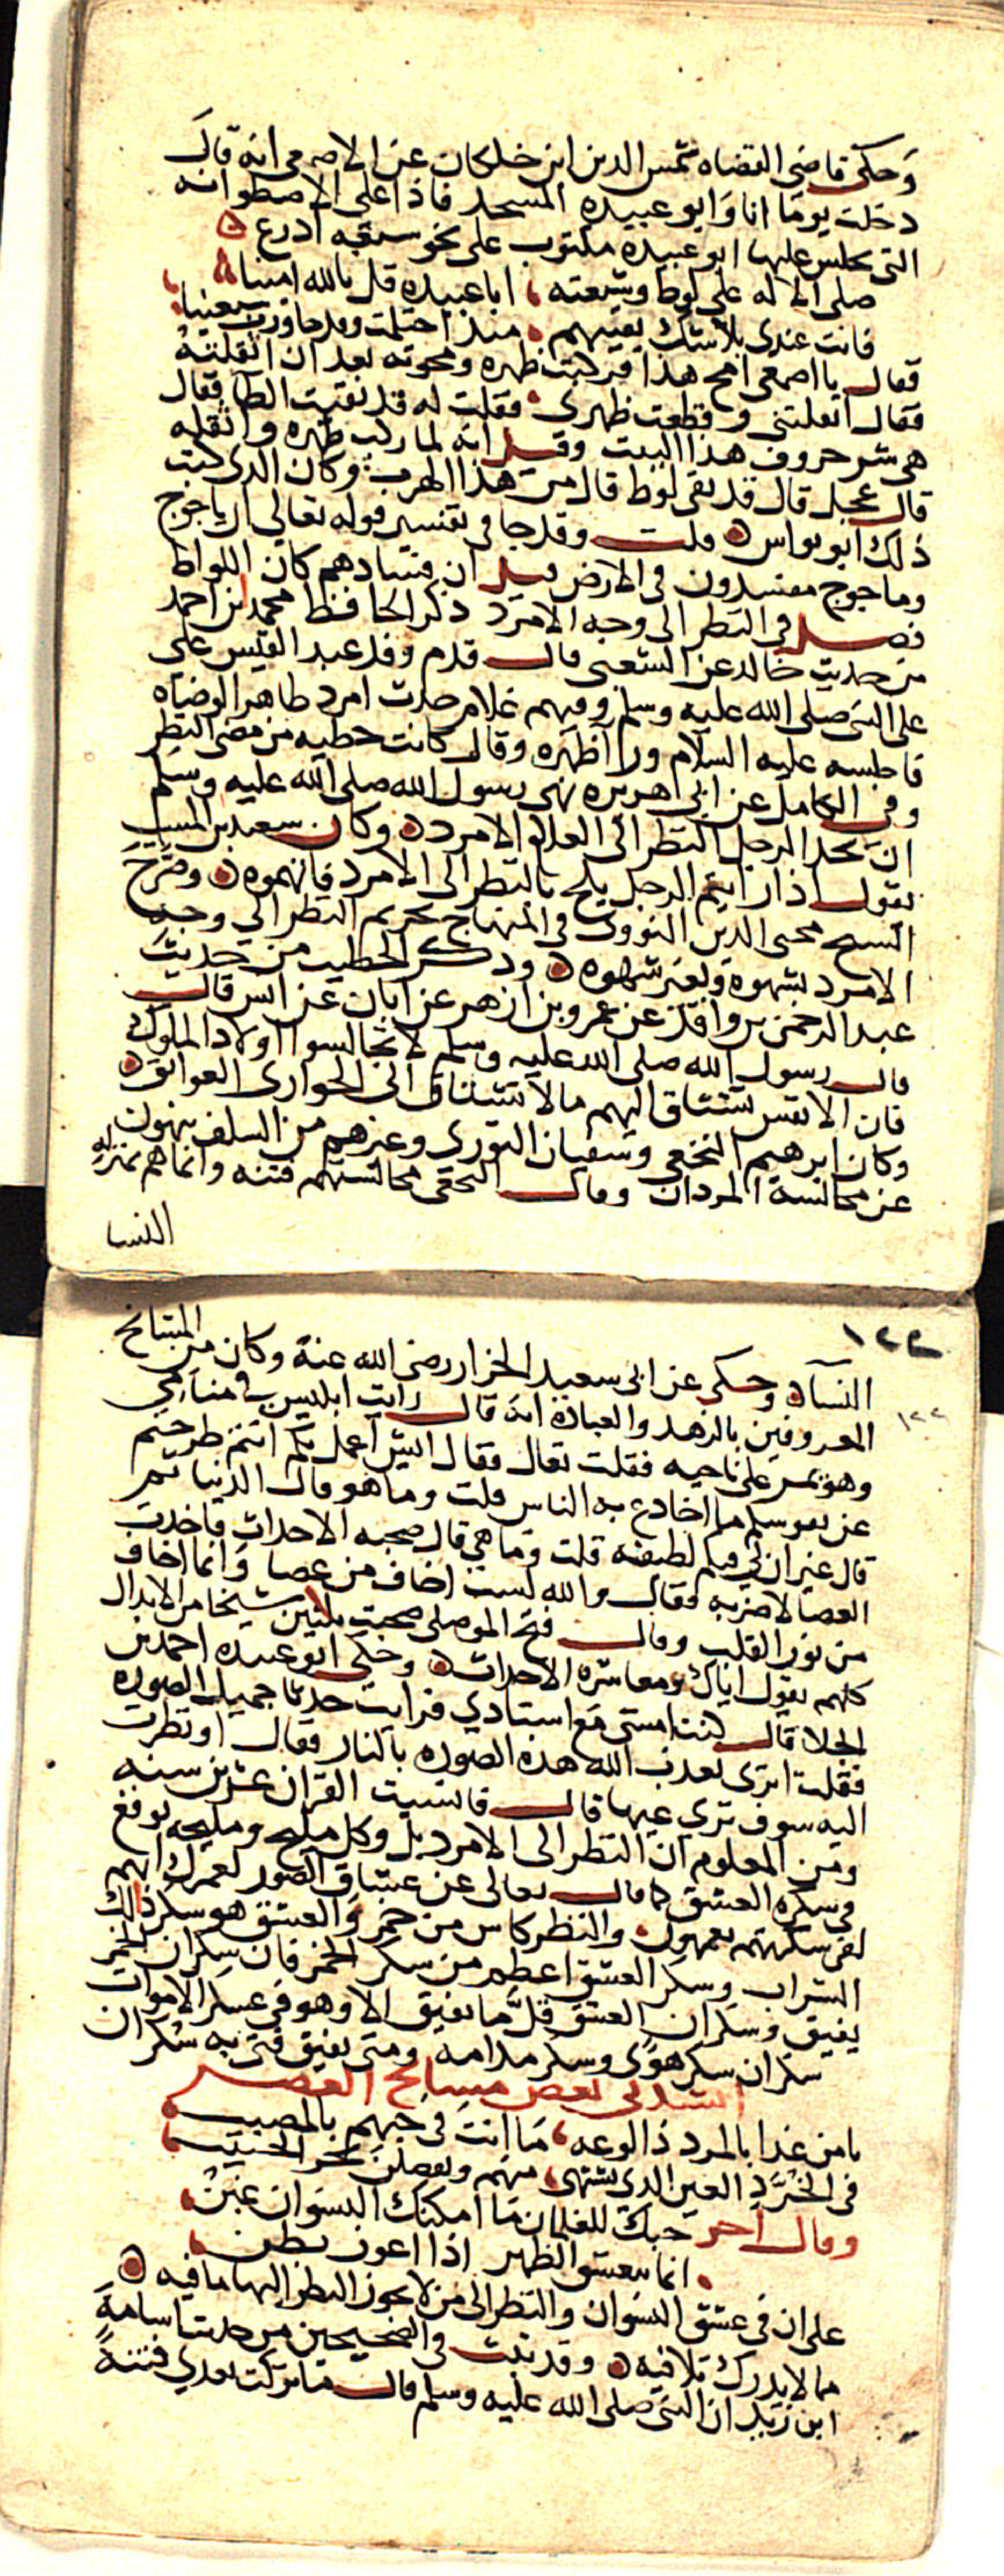 وحكى قاضي القضاه شمس الدين ابن خلكان عن الاصمعي انه قال
دخلت يوما انا وابو عبيده المسجد فاذا على الاصطوانه
التي يجلس عليها ابو عبيده مكتوب على نحو سبعه اذرع
صلى الاله على لوط وشيعته ، ابا عبيده قل بالله امينا
فانت عندي بلا شك بقيتهم ، منذ احتلمت وقد جاوزت سبعينا
فقال يا اصمعي امح هذا فركبت ظهره ومحوته بعد ان اثقلته
فقال اثقلتني وقطعت ظهري فقلت له قد بقيت الطا فقال
هي شر حروف هذا البيت وقيل انه لما ركب ظهره واثقله
قال عجل قال قد بقي لوط قال من هذا اهرب وكان الذي كتب
ذلك ابو نواس قلت وقد جا في تفسير قوله تعالى ان ياجوج
وماجوج مفسدون في الارض قيل ان فسادهم كان اللواط
فصل في النظر الى وجه الامرد ذكر الحافظ محمد بن احمد
من حديث خالد عن الشعبي قال قدم وفد عبد القيس على
على النبي صلى الله عليه وسلم وفيهم غلام حدث امرد ظاهر الوضاه
فاجلسه عليه السلام ورا ظهره وقال كانت خطيه من مضى النظر
وفي الكامل عن ابي هريره نهى رسول الله صلى الله عليه وسلم
ان يحد الرجل النظر الى الغلام الامرد وكان سعيد بن المسيب
يقول اذا رايتم الرجل يلح بالنظر الى الامرد فاتهموه وصرح
الشيخ محيي الدين النووي في المنهاج بتحريم النظر الي وجه
الامرد بشهوه ولغير شهوه وذكر الخطيب من حديث
عبد الرحمن بن واقد عن عمرو بن ازهر عن ابان عن انس قال
قال رسول الله صلى الله عليه وسلم لا تجالسوا اولاد الملوك
فان الانفس تشتاق اليهم ما لا تشتاق الى الجواري العواتق
وكان ابرهيم النخعي وسفيان الثوري وغيرهم من السلف ينهون
عن مجالسة المردان وقال النخعي مجالستهم فتنه وانما هم بمنزله
النسا
١٢٢
النسآء وحكى عن ابي سعيد الخراز رضي الله عنه وكان من المشايخ
المعروفين بالزهد والعباده انه قال رايت ابليس في منامي
وهو يمر على ناحيه فقلت تعال فقال ايش اعمل بكم انتم طرحتم
عن نفوسكم ما اخادع به الناس قلت وما هو قال الدنيا ثم
قال غير ان لي فيكم لطيفه قلت وما هي قال صحبه الاحداث فاخذت
العصا لاضربه فقال والله لست اخاف من عصا وانما اخاف
من نور القلب وقال فتح الموصلي صحبت ثلثين شيخا من الابدال
كلهم يقول اياك ومعاشره الاحداث وحكى ابو عبيده احمد بن
الجلا قال كنت امشي مع استادي فرايت حدثا جميل الصوره
فقلت اترى يعذب الله هذه الصوره بالنار فقال اونظرت
اليه سوف تري غبها قال فانسيت القران عشرين سنه
ومن المعلوم ان النظر الى الامرد بل وكل مليح ومليحه يوقع
في سكره العشق كما قال تعالى عن عشاق الصور لعمرك انهم
لفي سكرتهم يعمهون والنظر كاس من خمر والعشق هو سكر ذلك
الشراب وسكر العشق اعظم من سكر الخمر فان سكران الخمر
يفيق وسكران العشق قل ما يفيق الا وهو في عسكر الاموات
سكران سكر هوى وسكر مدامه ومتى يفيق فتى به سكران
انشدني بعض مشايخ العصر
يا من غدا بالمرد ذا لوعه ، ما انت في حبهم بالمصيب
في الخرد العين الذي تشتهي ، منهم
وقال اخر حبك للغلمان ما امكنك النسوان غبن
انما يعشق الظهر اذا اعوز بطن
على ان في عشق النسوان والنظر الى من لا يجوز النظر اليها ما فيه
مما لا يدرك تلافيه وقد ثبت في الصحيحين من حديث اسامة
ابن زيد ان النبي صلى الله عليه وسلم قال ما تركت بعدي فتنة